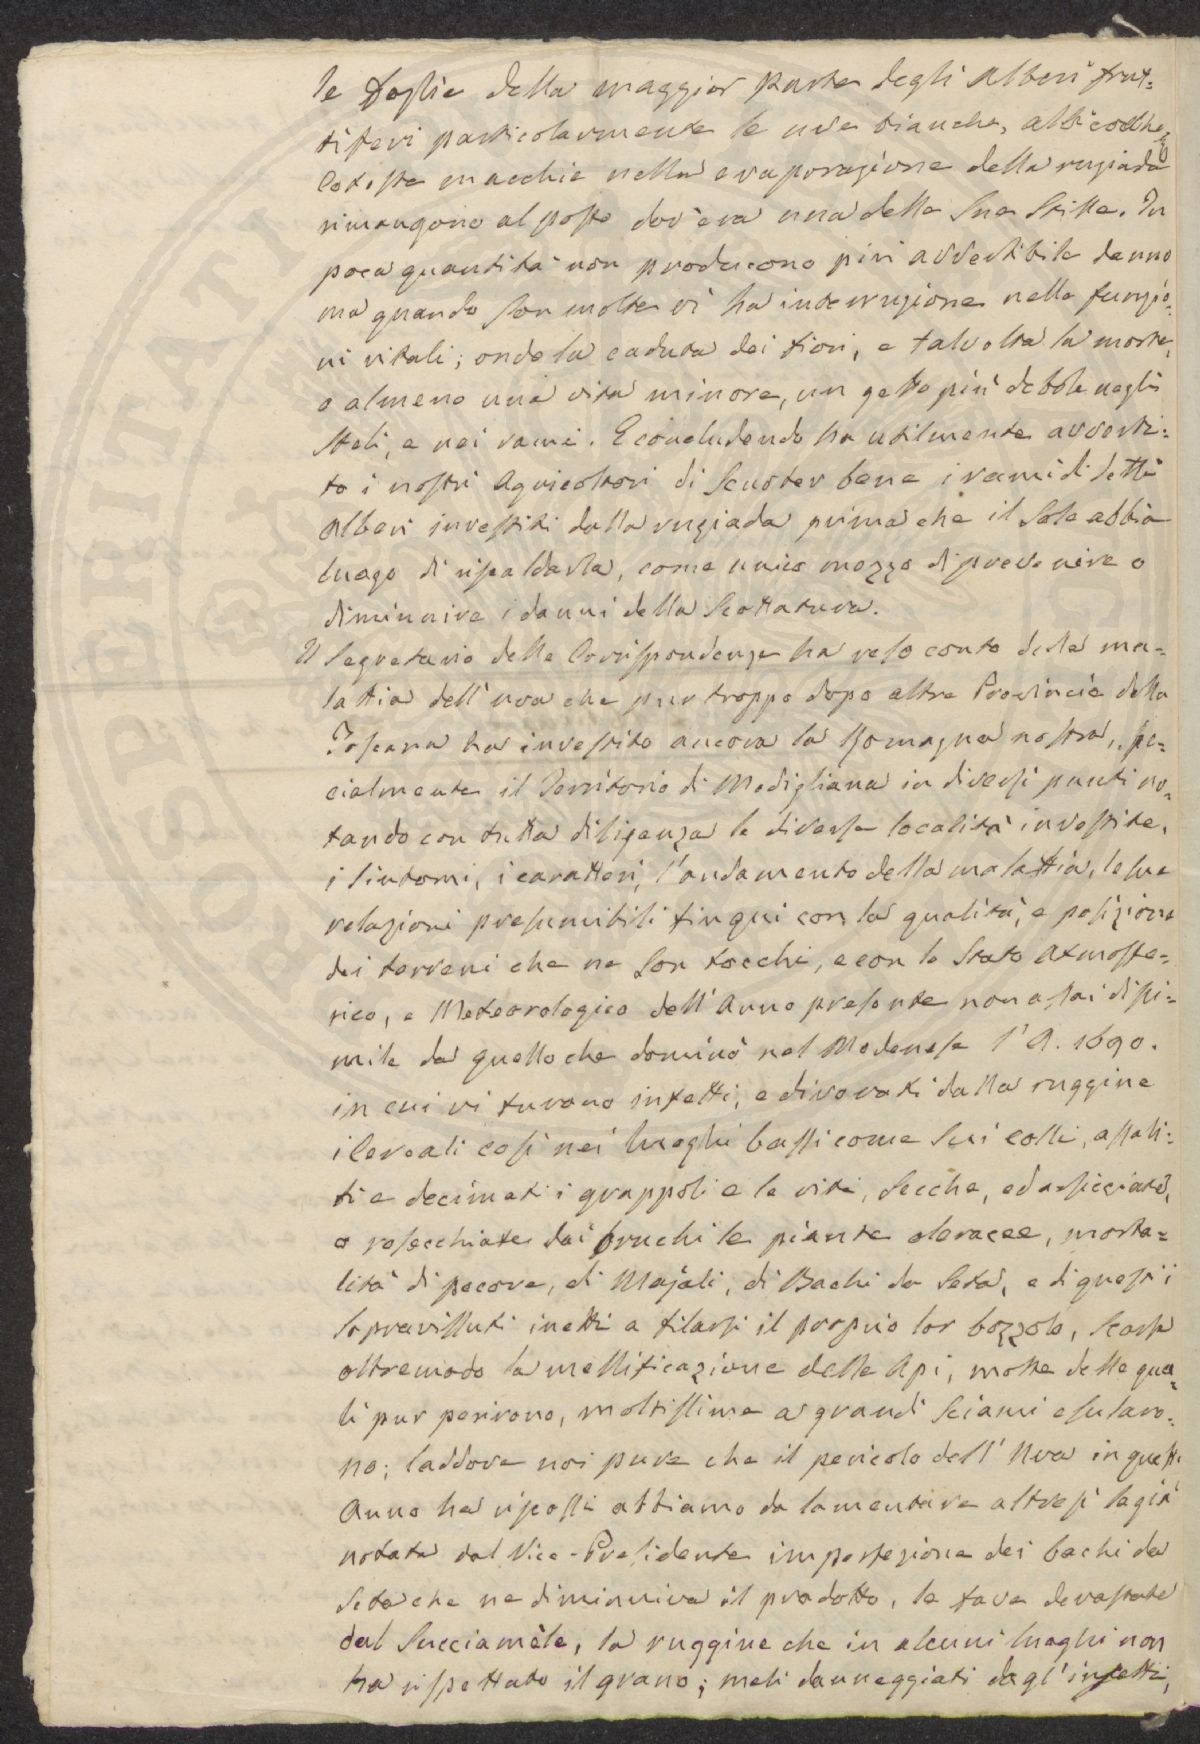 le foglie della maggior parte degli Alberi frut-
tiferi particolarmente le uve bianche, albicocche
Coteste macchie nella evaporazione della rugiada
rimangono al posto dov'era una delle sue stille. In
poca quantità non producono più avvertibile danno
ma quando son molte vi ha interruzione nelle funzio-
ni vitali; onde la caduta dei fiori, e talvolta la morte,
o almeno una vita minore, un getto più debole negli
steli, e nei rami. E concludendo ha utilmente avverti-
to i nostri Agricoltori di scuoter bene i rami di detti
Alberi investiti dalla rugiada prima che il Sole abbia
luogo di riscaldarla, come unico mezzo di prevenire o
diminuire i danni della scottatura.
Il Segretario delle Corrispondenze ha reso conto della ma-
lattia dell'uva che pur troppo dopo altre Provincie della
Toscana ha investito ancora la Romagna nostra, spe-
cialmente il Territorio di Modigliana in diversi punti no-
tando con tutta diligenza le diverse località investite,
i sintomi, i caratteri, l'andamento della malattia, le sue
relazioni presumibili fin qui con la qualità, e posizione
dei terreni che ne son tocchi, e con lo Stato Atmosfe-
rico, e Meteorologico dell'Anno presente non assai dissi-
mile da quello che dominò nel Modenese l'A. 1690.
in cui vi furono infetti, e divorati dalla ruggine
i Cereali così nei luoghi bassi come sui colli, assali-
ti e decimati i grappoli e le viti, secche, ed arsicciate,
o rosecchiate dai bruchi le piante oleracee, morta-
lità di pecore, di Majali, di Bachi da Seta, e di questi i
sopravissuti inetti a filarsi il proprio lor bozzolo, scarsa
oltremodo la mellificazione delle Api, molte delle qua-
li pur perirono, moltissime a grandi sciami esularo-
no; laddove noi pure che il pericolo dell'Uva in quest'
Anno ha riscossi abbiamo da lamentare altresì la già
notata dal Vice-Presidente imperfezione dei bachi da
Seta che ne diminuiva il prodotto, le fave devastate
dal Succiamèle, la ruggine che in alcuni luoghi non
ha rispettato il grano; meli danneggiati dagl'insetti,